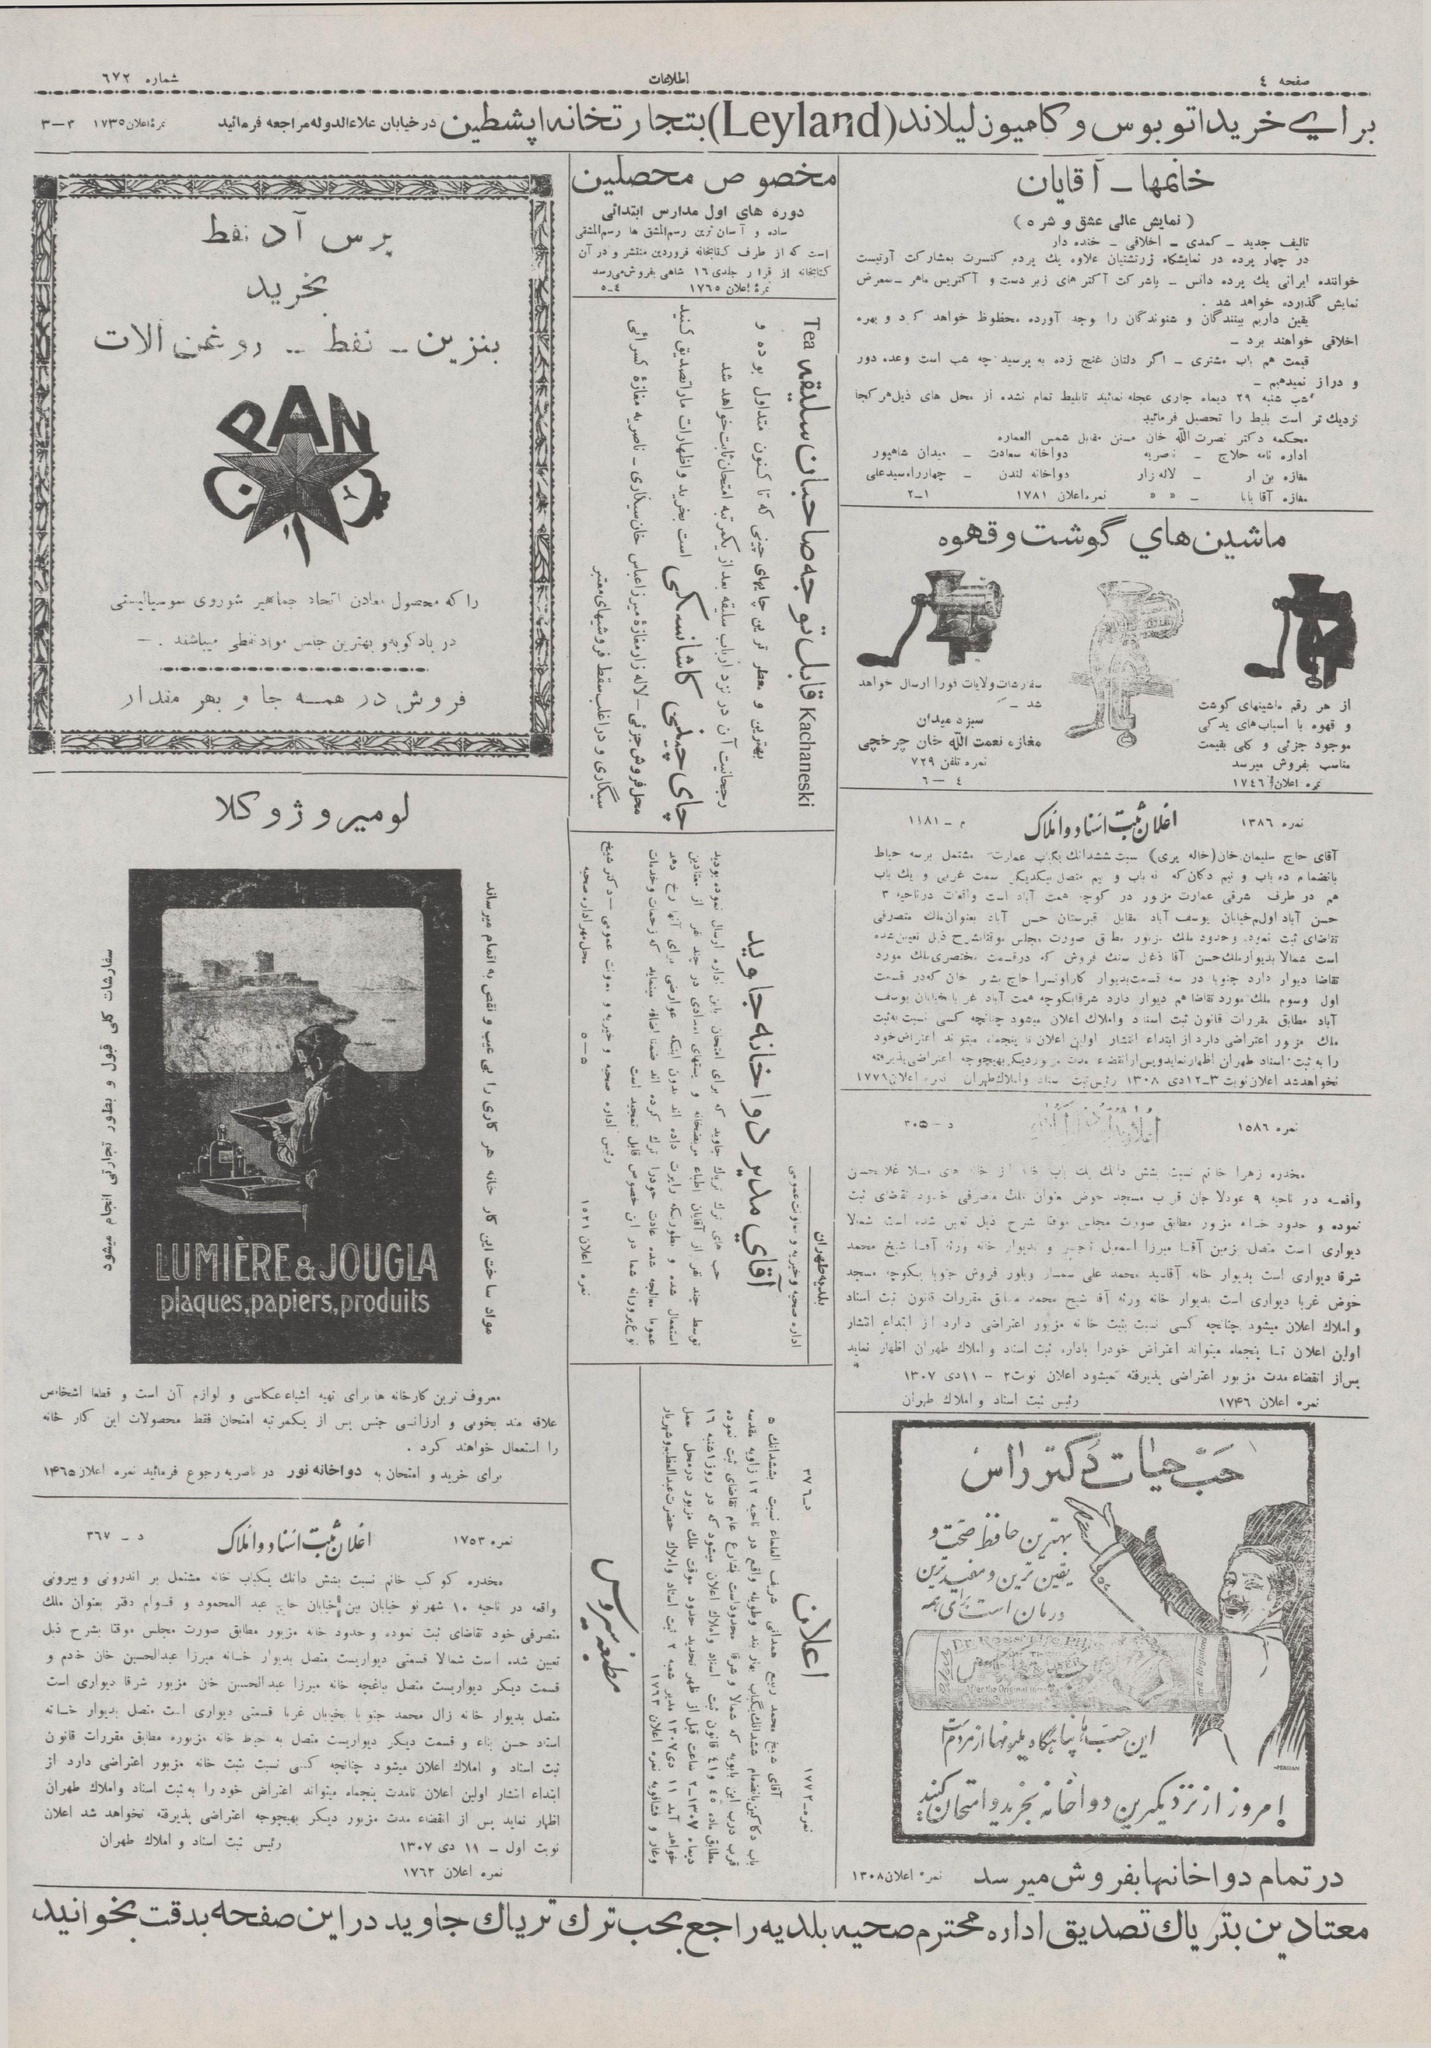 صفحه ٤
اطلاعات
شماره ٦٧٢
برای خرید اتوبوس و کامیون لیلاند (Leyland) بتجارتخانه اپشطین در خیابان علاءالدوله مراجعه فرمائید نمرۀ اعلان ۱۷۳٥ ۳—۳
خانمها - آقایان
( نمایش عالی عشق و شره )
تالیف جدید - کمدی - اخلاقی - خنده دار
در چهار پرده در نمایشگاه زرتشتیان علاوه یك پرده کنسرت بمشارکت آرتیست
خواننده ایرانی یك پرده دانس - باشرکت آکتر های زبر دست و آکتریس ماهر - بمعرض
نمایش گذارده خواهد شد .
یقین داریم بینندگان و شنوندگان را وجد آورده محظوظ خواهد کرد و بهره
اخلاقی خواهند برد -
قیمت هم باب مشتری - اگر دلتان غنج زده به پرسید چه شب است وعده دور
و دراز نمیدهیم -
شب شنبه ۲۹ دیماه جاری عجله نمائید تابلیط تمام نشده از محل های ذیل هر کجا
نزدیك تر است بلیط را تحصیل فرمائید
محکمه دکتر نصرت الله خان مقابل شمس العماره
اداره نامه حلاج - ناصریه دواخانه سعادت - میدان شاهپور
مغازه بن ار - لاله زار دواخانه لندن - چهارراه سیدعلی
مغازه آقا بابا - « « نمره اعلان ۱۷۸۱ ۱-۲
ماشین های گوشت و قهوه
از هر رقم ماشینهای گوشت
و قهوه با اسباب های یدکی
موجود جزئی و کلی بقیمت
مناسب بفروش میرسد
نمره اعلان ۱۷٤٦
سفارشات ولایات فورا ارسال خواهد
شد -
سبزه میدان
مغازه نعمت الله خان چرخچی
نمره تلفن ۷۲۹
٤ — ٦
نمره ۱۳۸٦ اعلان ثبت اسناد و املاک م - ۱۱۸۱
آقای حاج سلیمان خان (خاله پری) نسبت ششدانك یکباب عمارت مشتمل برسه حیاط
بانضمام ده باب و نیم دکان که نه باب و نیم متصل بیکدیگر سمت غربی و یك باب
هم در طرف شرقی عمارت مزبور در کوچه همت آباد است واقعات درناحیه ۳
حسن آباد اول خیابان یوسف آباد مقابل قبرستان حسن آباد بعنوان ملك متصرفی
تقاضای ثبت نموده و حدود ملك مزبور مطابق صورت مجلس موقتا بشرح ذیل تعیین شده
است شمالا بدیوار ملك حسن آقا ذغال سنك فروش که درقسمت مختصری ملك مورد
تقاضا دیوار دارد جنوبا در سه قسمت بدیوار کاراونسرا حاج بشیر خان که در قسمت
اول وسوم ملك مورد تقاضا هم دیوار دارد شرقا بکوچه همت آباد غربا بخیابان یوسف
آباد مطابق مقررات قانون ثبت اسناد و املاك اعلان میشود چنانچه کسی نسبت به ثبت
ملك مزبور اعتراضی دارد از ابتداء انتشار اولین اعلان تا پنجماه میتواند اعتراض خود
را به ثبت اسناد طهران اظهار نماید و پس از انقضاء مدت مزبور دیگر بهیچوجه اعتراضی پذیرفته
نخواهد شد اعلان نوبت ۳-۱۲ دی ۱۳۰۸ رئیس ثبت اسناد و املاك طهران نمره اعلان ۱۷۷٦
نمره ۱٥۸٦ د - ۳۰٥
مخدره زهرا خانم نسبت بشش دانك یك باب خانه از خانه های ملا غلامحسن
واقعه در ناحیه ۹ عودلاجان قرب مسجد حوض بعنوان ملك متصرفی خود تقاضای ثبت
نموده و حدود خانه مزبور مطابق صورت مجلس موقتا بشرح ذیل تعیین شده است شمالا
دیواری است متصل بزمین آقا میرزا اسمعیل تاجر و بدیوار خانه ورثه آقا شیخ محمد
شرقا دیواری است بدیوار خانه آقاسید محمد علی سمسار وبلور فروش جنوبا بکوچه مسجد
حوض غربا دیواری است بدیوار خانه ورثه آقا شیخ محمد مطابق مقررات قانون ثبت اسناد
و املاك اعلان میشود چنانچه کسی نسبت بثبت خانه مزبور اعتراضی دارد از ابتداء انتشار
اولین اعلان تا پنجماه میتواند اعتراض خودرا باداره ثبت اسناد و املاك طهران اظهار نماید
پس از انقضاء مدت مزبور اعتراضی پذیرفته نمیشود اعلان نوبت ۲ - ۱۱ دی ۱۳۰۷
نمره اعلان ۱۷۴٦ رئیس ثبت اسناد و املاك طهران
حب حیات دکتر راس
بهترین حافظ صحت و
یقین ترین و مفیدترین
درمان است برای همه
Dr. Ross
PERSIAN
این حب ها پناهگاه میلیونها از مردم است
امروز از نزدیکترین دواخانه بخرید و امتحان کنید
در تمام دواخانها بفروش میرسد نمره اعلان ۱۳۰۸
مخصوص محصلین
دوره های اول مدارس ابتدائی
ساده و آسان ترین رسم المشق ها رسم المشقی
است که از طرف کتابخانه فروردین منتشر و در آن
کتابخانه از قرار جلدی ۱٦ شاهی بفروش میرسد
نمرۀ اعلان ۱۷٦٥ ٤-٥
Tea قابل توجه صاحبان سلیقه Kachaneski
بهترین و معطر ترین چایهای چینی که تا کنون متداول بوده و
رجحانیت آن در نزد ارباب سلیقه بعد از یکمرتبه امتحان ثابت خواهد شد
چای چینی کاشانسکی است بخرید و اظهارات مارا تصدیق کنید
محل فروش جزئی - لاله زار مغازۀ میرزا عباس خان سیگاری - ناصریه مغازۀ کسرائی
سیگاری و در اغلب سقط فروشیهای معتبر
بلدیه طهران
اداره صحیه و خیریه و معاونت عمومی
آقای مدیر دواخانه جاوید
حب های ترك تریاك جاوید که برای امتحان باین اداره ارسال نموده بودید
توسط چند نفر از آقایان اطباء مریضخانه و پستهای امدادی در چند نفر از معتادین
استعمال شده و بطوریکه راپرت داده اند بدون اینکه عوارضی برای آنها رخ دهد
عموما معالجه شده عادت خودرا ترك کرده اند ضمنا اضافه مینماید که زحمات و خدمات
نوع پرورانه شما در این خصوص قابل تمجید است
رئیس اداره صحیه و خیریه و معاونت عمومی - دکتر شیخ
نمره اعلان ۱٥۲۱ ٥—٥ محل مهر اداره صحیه
نمره - ۱۷۷۲ اعلان د - ۳۷٦
آقای شیخ محمد ربیع همدانی شریف العلماء نسبت بششدانك ٥
باب دکاکین بانضمام ششدانك یکباب بهار بند وطویله واقع در ناحیه ۱۲ زاویه مقدسه
قرب درب ابن بابویه که شمالا و شرقا محدود است بشارع عام تقاضای ثبت نموده
مطابق ماده ٤٥ و ٤۱ قانون ثبت اسناد و املاك اعلان میشود که در روز ۱ شنبه ۱٦
دیماه ۱۳۰۷-۲ ساعت قبل از ظهر تحدید حدود موقت ملك مزبور درمحل بعمل
خواهد آمد ۱۱ دی ۱۳۰۷ مدیر شعبه ۲ ثبت اسناد و املاك حضرت عبدالعظیم و شهریار
وغار و فشافویه نمره اعلان ۱۷٦۳
مطبعه سیروس
پرس آد نفط
بخرید
بنزین - نفط - روغن آلات
PAN
پرس آد نفط
را که محصول معادن اتحاد جماهیر شوروی سوسیالیستی
در بادکوبه و بهترین جنس مواد نفطی میباشد . -
فروش در همه جا و بهر مقدار
لومیر و ژوکلا
مواد ساخت این کار خانه هر کاری را بی عیب و نقص به اتمام میرساند
سفارشات کلی قبول و بطور تجارتی انجام میشود
LUMIÈRE & JOUGLA
plaques, papiers, produits
معروف ترین کارخانه ها برای تهیه اشیاء عکاسی و لوازم آن است و قطعا اشخاص
علاقه مند بخوبی و ارزانی جنس پس از یکمرتبه امتحان فقط محصولات این کار خانه
را استعمال خواهند کرد .
برای خرید و امتحان به دواخانه نور در ناصریه رجوع فرمائید نمره اعلان ۱۴٦٥
نمره ۱۷٥۳ اعلان ثبت اسناد و املاک د - ۳٦۷
مخدره کوکب خانم نسبت بشش دانك یکباب خانه مشتمل بر اندرونی و بیرونی
واقعه در ناحیه ۱۰ شهر نو خیابان بین خیابان حاج عبد المحمود و قوام دفتر بعنوان ملك
متصرفی خود تقاضای ثبت نموده وحدود خانه مزبور مطابق صورت مجلس موقتا بشرح ذیل
تعیین شده است شمالا قسمتی دیواریست متصل بدیوار خانه میرزا عبدالحسین خان خادم و
قسمت دیگر دیواریست متصل بباغچه خانه میرزا عبدالحسین خان مزبور شرقا دیواری است
متصل بدیوار خانه زال محمد جنوبا بخیابان غربا قسمتی دیواری است متصل بدیوار خانه
استاد حسن بناء و قسمت دیگر دیواریست متصل به حیاط خانه مزبوره مطابق مقررات قانون
ثبت اسناد و املاك اعلان میشود چنانچه کسی نسبت بثبت خانه مزبور اعتراضی دارد از
ابتداء انتشار اولین اعلان تامدت پنجماه میتواند اعتراض خود را به ثبت اسناد واملاك طهران
اظهار نماید پس از انقضاء مدت مزبور دیگر بهیچوجه اعتراضی پذیرفته نخواهد شد اعلان
نوبت اول - ۱۱ دی ۱۳۰۷ رئیس ثبت اسناد و املاك طهران
نمره اعلان ۱۷٦۲
معتادین بتریاك تصدیق اداره محترم صحیه بلدیه راجع بحب ترك تریاك جاوید در این صفحه بدقت بخوانید